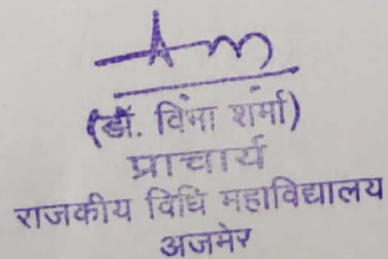 (डॉ. विभा शर्मा)
प्राचार्य
राजकीय विधि महाविद्यालय
अजमेर